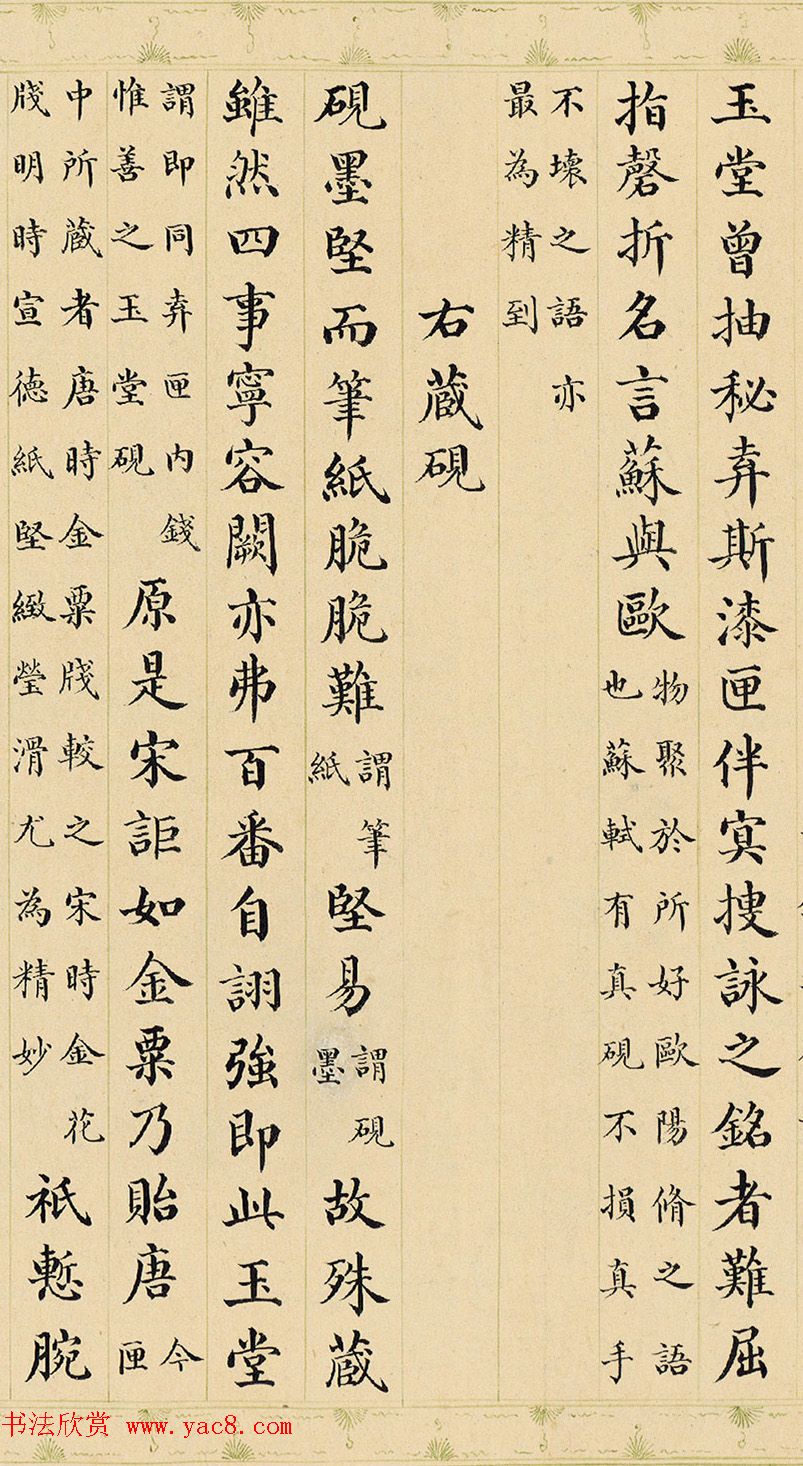 玉堂曾抽秘弆斯漆匣伴㝠搜詠之銘者難屈
指磬折名言蘇與歐物聚於所好歐陽脩之語也蘇軾有真硯不損真手
不壞之語亦最為精到
右蔵硯
硯墨堅而筆紙脆脆難謂筆紙堅易謂硯墨故殊蔵
雖然四事寧容闕亦弗百番自詡強即此玉堂
謂即同弆匣内錢惟善之玉堂硯原是宋詎如金粟乃貽唐今匣
中所蔵者唐時金粟牋較之宋時金花牋明時宣徳紙堅緻瑩滑尤為精妙祇慙腕
书法欣赏 www.yac8.com